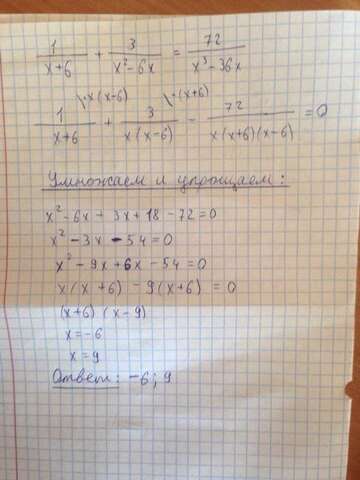 1/(x+6) + 3/(x²-6x) = 72/(x³-36x)
1\·x(x-6)/(x+6) + 3\·(x+6)/(x(x-6)) - 72/(x(x+6)(x-6)) = 0
Умножаем и упрощаем:
x²-6x+3x+18-72=0
x²-3x-54=0
x²-9x+6x-54=0
x(x+6)-9(x+6)=0
(x+6)(x-9)
x=-6
x=9
Ответ: -6; 9